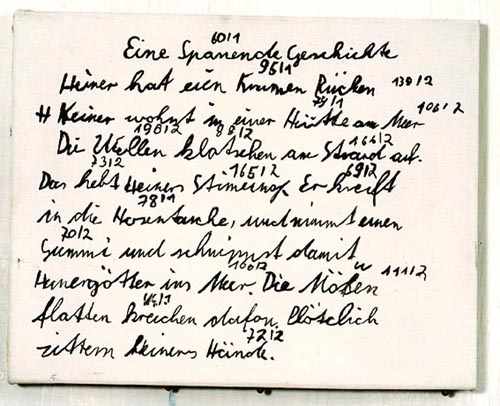 60/1
Eine Spanende Geschichte
95/1
Heiner hat eien Krumen Rücken 139/2
79/1 106/2
H Keiner wohnt in einer Hütte am Meer
198/2 88/2 166/2
Die Wellen klatschen am Strand auf.
73/2 165/2 69/2
Das hebt Heiners Stimeung. Er kreift
78/1
in die Hosentasche, und nimmt einen
70/2
Gummi und schnippst damit
100/2 111/2
Hünergötter ins Meer. Die Möfen
flatten kreichen dafon. Plötzlich
72/2
zittern Heiners Hände.